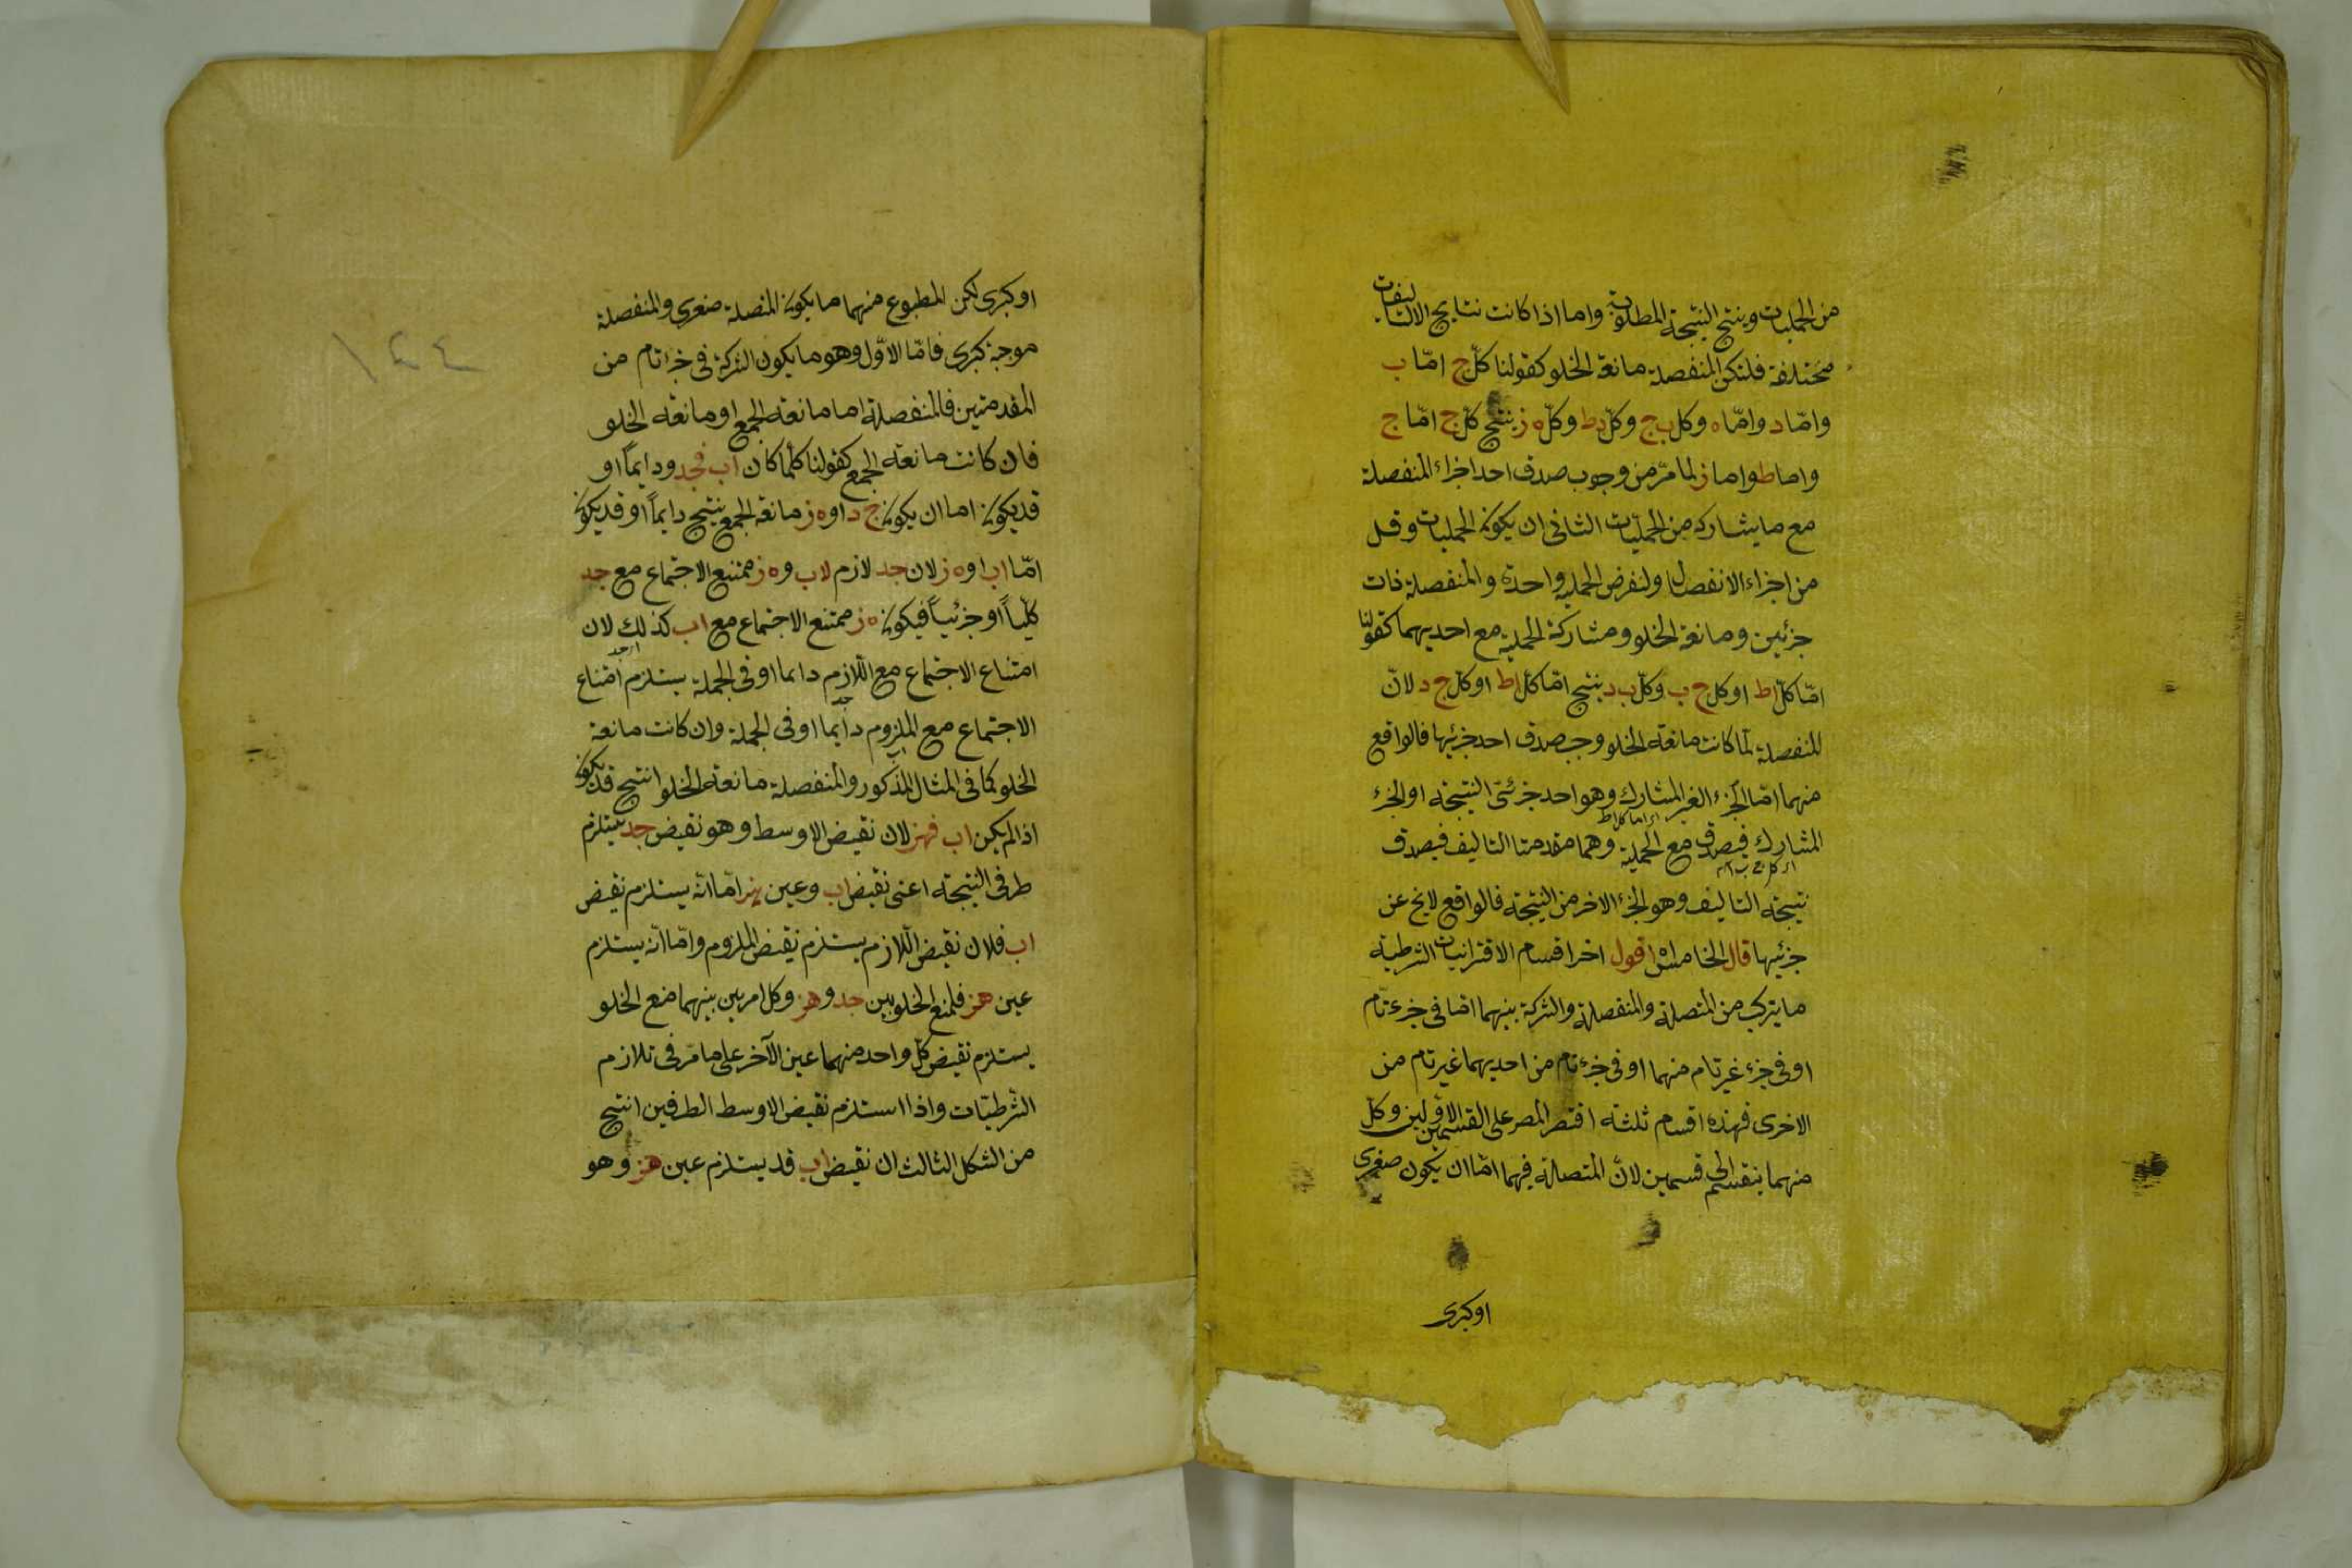 من الحمليات وينتج النتيجة المطلوبة واما اذا كانت نتايج التاليفات
مختلفة فلتكن المنفصلة مانعة الخلو كقولنا كلّ ج امّا ب
وامّا د وامّا ه وكل ب ج وكلّ د ط وكلّ ه ز ينتج كلّ ج امّا ج
واما ط واما ز لما مرّ من وجوب صدق احد اجزاء المنفصلة
مع ما يشاركه من الحمليّات الثانى ان يكون الحمليات وقل
من اجزاء الانفصال ولنفرض الحملية واحدة والمنفصلة ذات
جزئين ومانعة الخلو ومشاركة الحملية مع احديهما كقولنا
امّا كلّ ا ط او كل ج ب وكلّ ب د ينتج امّا كلّ ا ط او كلّ ج د لانّ
المنفصلة لمّا كانت مانعة الخلو وجب صدق احد جزئيها فالواقع
منهما امّا الجزء الغير المشارك وهو احد جزئى النتيجة او الجزء
اى اما كل ا ط
المشارك فيصدق مع الحملية وهما مقدمتا التاليف فيصدق
اى كل ج ب
نتيجة التاليف وهو الجزء الاخر من النتيجة فالواقع لا يخ عن
جزئيها قال الخامس اه اقول اخر اقسام الاقترانيات الشرطية
ما يتركب من المتصلة والمنفصلة والشركة بينهما امّا فى جزء تامّ
او فى جزء غير تام منهما او فى جزء تام من احديهما غير تام من
الاخرى فهذه اقسام ثلثة اقتصر المصر على القسمين الاوّلين وكلّ
منهما ينقسم الى قسمين لانّ المتصلة فيهما امّا ان يكون صغرى
او كبرى
او كبرى لكن المطبوع منهما ما يكون المتصلة صغرى والمنفصلة
موجبة كبرى فامّا الاوّل وهو ما يكون الشركة فى جزء تام من
المقدمتين فالمنفصلة اما مانعة الجمع او مانعة الخلو
فان كانت مانعة الجمع كقولنا كلّما كان ا ب فجد ودايماً او
قد يكون اما ان يكون ج د او ه ز مانعة الجمع ينتج دايماً او قد يكون
امّا ا ب او ه ز لان جد لازم لاب و ه ز ممتنع الاجتماع مع جد
كليّاً او جزئياً فيكون ه ز ممتنع الاجتماع مع ا ب كذلك لان
امتناع الاجتماع مع اللازم دايما او فى الجملة يستلزم امتناع
الاجتماع مع الملزوم دايما او فى الجملة وان كانت مانعة
الخلو كما فى المثال المذكور والمنفصلة مانعة الخلو انتج قد يكون
اذا لم يكن ا ب فهز لان نقيض الاوسط وهو نقيض جد يستلزم
طرفى النتيجة اعنى نقيض ا ب وعين هز امّا انّه يستلزم نقيض
ا ب فلان نقيض اللازم يستلزم نقيض الملزوم وامّا انّه يستلزم
عين هز فلمنع الخلو بين جد وهز وكل امرين بينهما منع الخلو
يستلزم نقيض كلّ واحد منهما عين الآخر على ما مرّ فى تلازم
الشّرطيّات واذا استلزم نقيض الاوسط الطرفين انتج
من الشكل الثالث ان نقيض ا ب قد يستلزم عين هز وهو
١٤٤